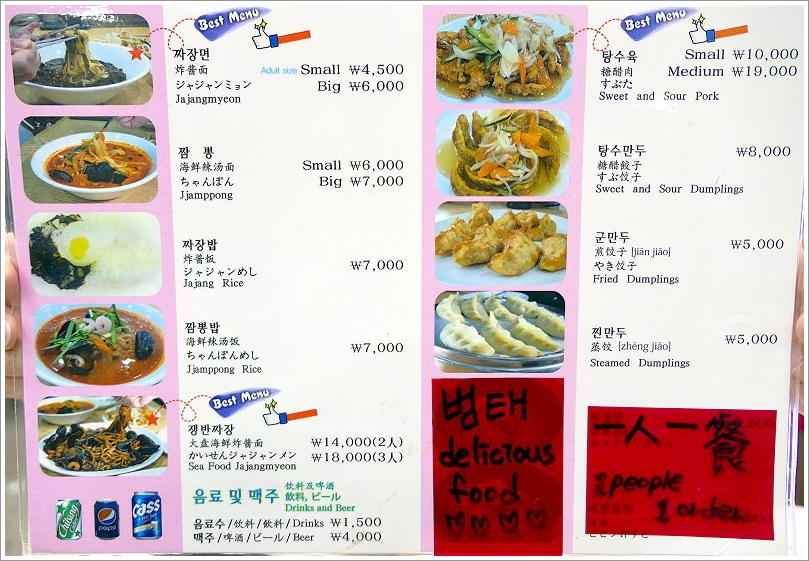 Best Menu
짜장면
炸酱面 Adult size Small ₩4,500
ジャジャンミョン Big ₩6,000
Jajangmyeon
짬 뽕
海鮮辣汤面 Small ₩6,000
ちゃんぽん Big ₩7,000
Jjamppong
짜장밥
炸酱饭
ジャジャンめし ₩7,000
Jajang Rice
짬뽕밥
海鮮辣汤饭
ちゃんぽんめし ₩7,000
Jjamppong Rice
Best Menu
쟁반짜장
大盘海鲜炸酱面 ₩14,000(2人)
かいせんジャジャンメン ₩18,000(3人)
Sea Food Jajangmyeon
음료 및 맥주 饮料及啤酒
飲料, ビール
Drinks and Beer
음료수/饮料/飲料/Drinks ₩1,500
맥주/啤酒/ビール/Beer ₩4,000
pepsi
cass
Best Menu
탕수육 Small ₩10,000
糖醋肉 Medium ₩19,000
すぶた
Sweet and Sour Pork
탕수만두
糖醋餃子 ₩8,000
すぶ餃子
Sweet and Sour Dumplings
군만두
煎饺子 [jiān jiǎo] ₩5,000
やき餃子
Fried Dumplings
찐만두
蒸饺 [zhēng jiǎo] ₩5,000
Steamed Dumplings
범태
delicious
food
一人一餐
1 people
1 order